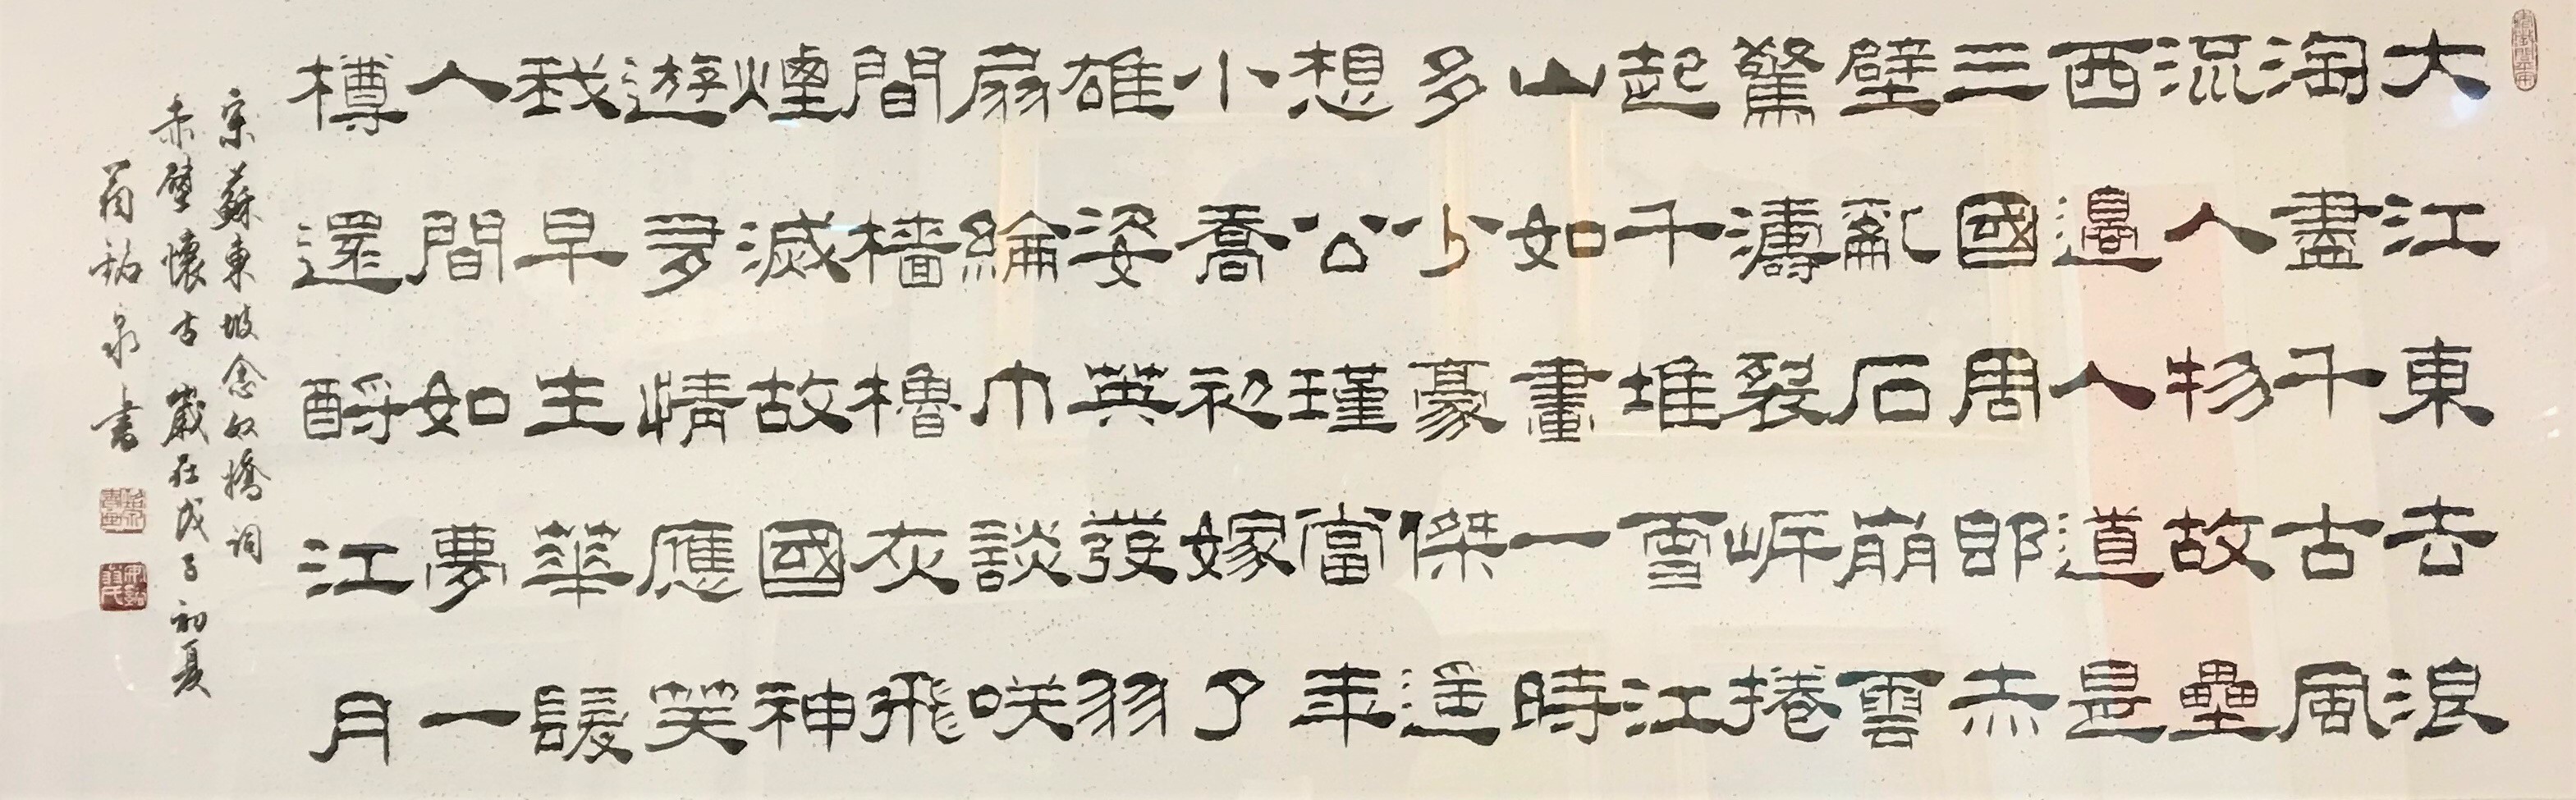 大江東去浪
淘盡千古風
流人物故壘
西邊人道是
三國周郎赤
壁亂石崩雲
驚濤裂岸捲
起千堆雪江
山如畫一時
多少豪傑遙
想公瑾當年
小喬初嫁了
雄姿英發羽
扇綸巾談咲
間檣櫓灰飛
煙滅故國神
遊多情應笑
我早生華髮
人間如夢一
樽還酹江月
宋蘇東坡念奴嬌詞
赤壁懷古 歲在戊子初夏
翁祐泉書